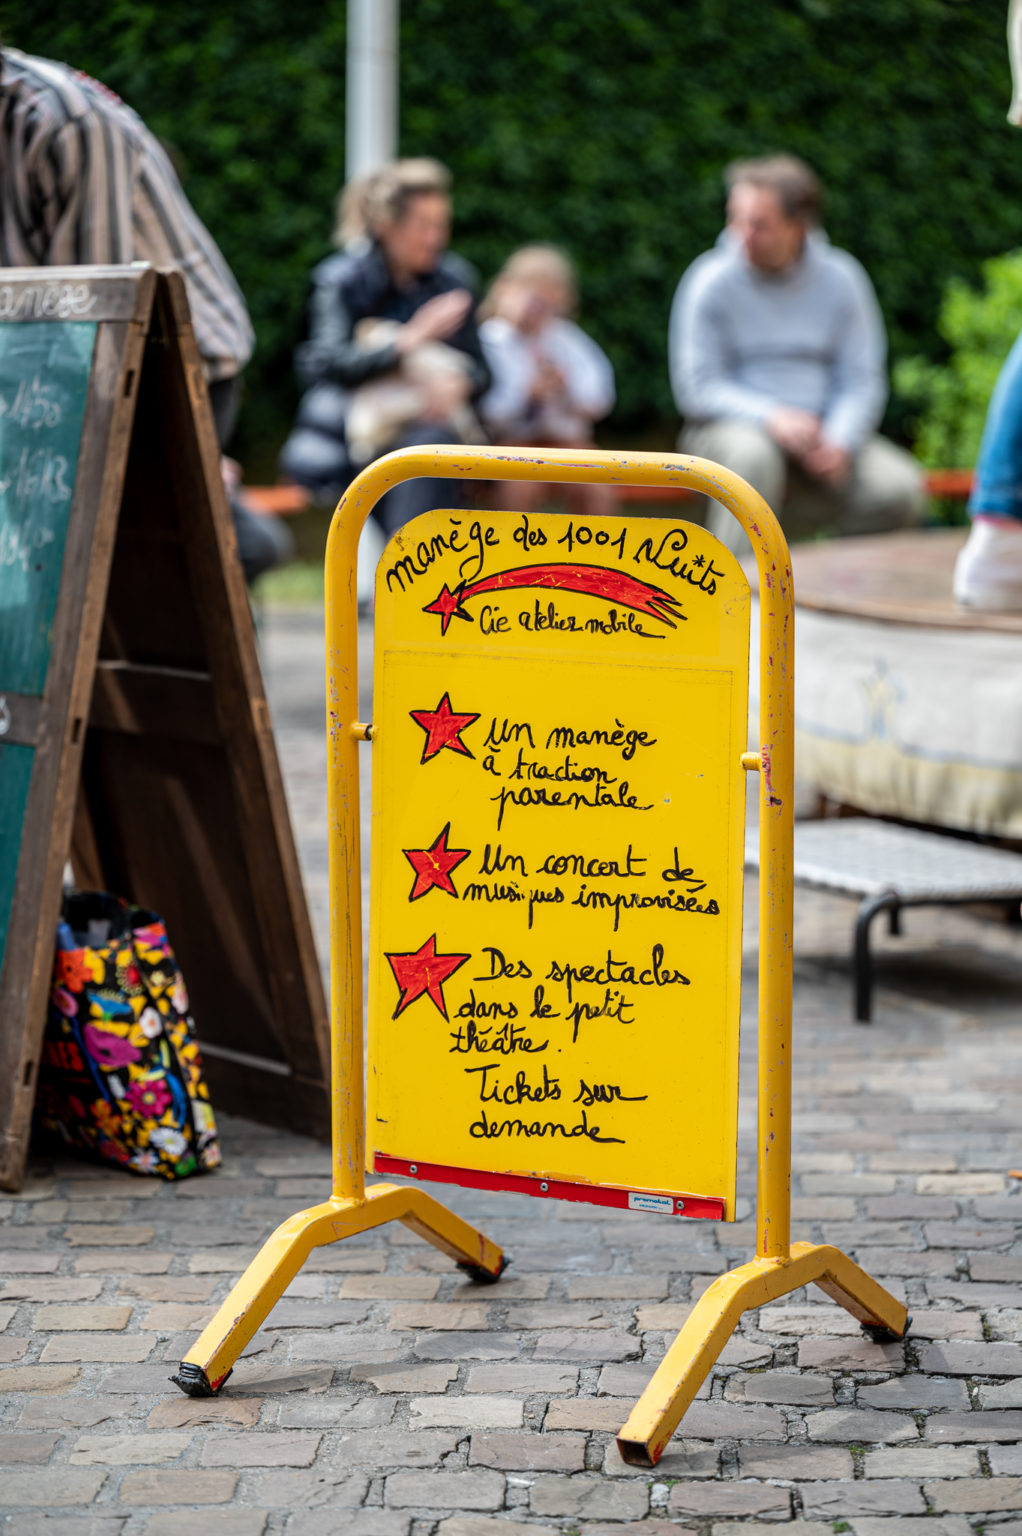 manège des 1001 Nuits
Cie atelier mobile
Un manège
à traction
parentale
Un concert de
musiques improvisées
Des spectacles
dans le petit
théâtre.
Tickets sur
demande
promotal
anège